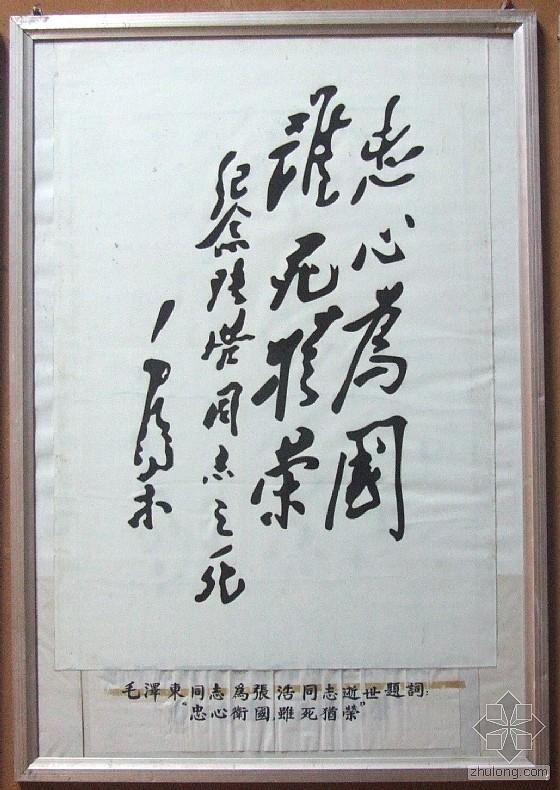 忠心為國
雖死猶榮
紀念張浩同志之死
毛澤東
毛澤東同志為張浩同志逝世題詞：
“忠心衛國，雖死猶榮”
zhulong.com